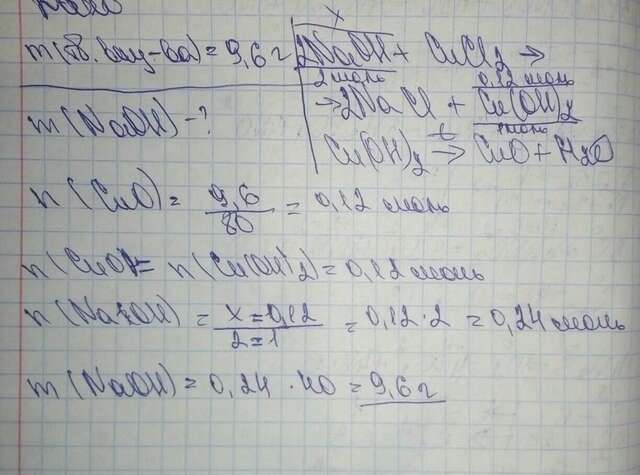 Дано
m(тв. вещ-ва) = 9,6 г
m(NaOH) - ?
x
2NaOH + CuCl2 →
2 моль
0,12 моль
→ 2NaCl + Cu(OH)2
1 моль
Cu(OH)2 t→ CuO + H2O
n(CuO) = 9,6/80 = 0,12 моль
n(CuO) = n(Cu(OH)2) = 0,12 моль
n(NaOH) = x = 0,12 / 2 = 1 = 0,12 · 2 = 0,24 моль
m(NaOH) = 0,24 · 40 = 9,6 г